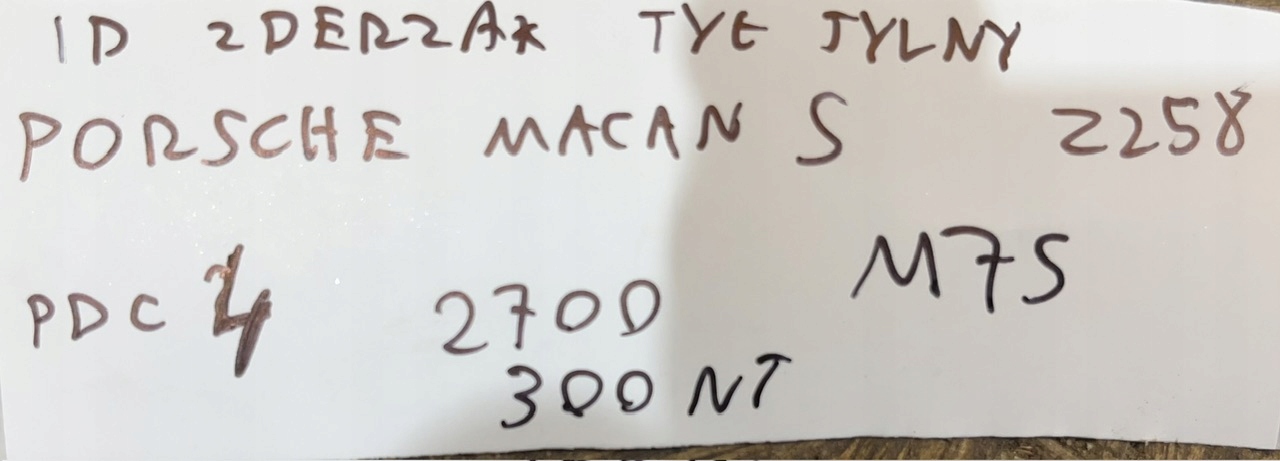 ID ZDERZAK TYŁ TYLNY
PORSCHE MACAN S 2258
M7S
PDC 4 2700
300 NT